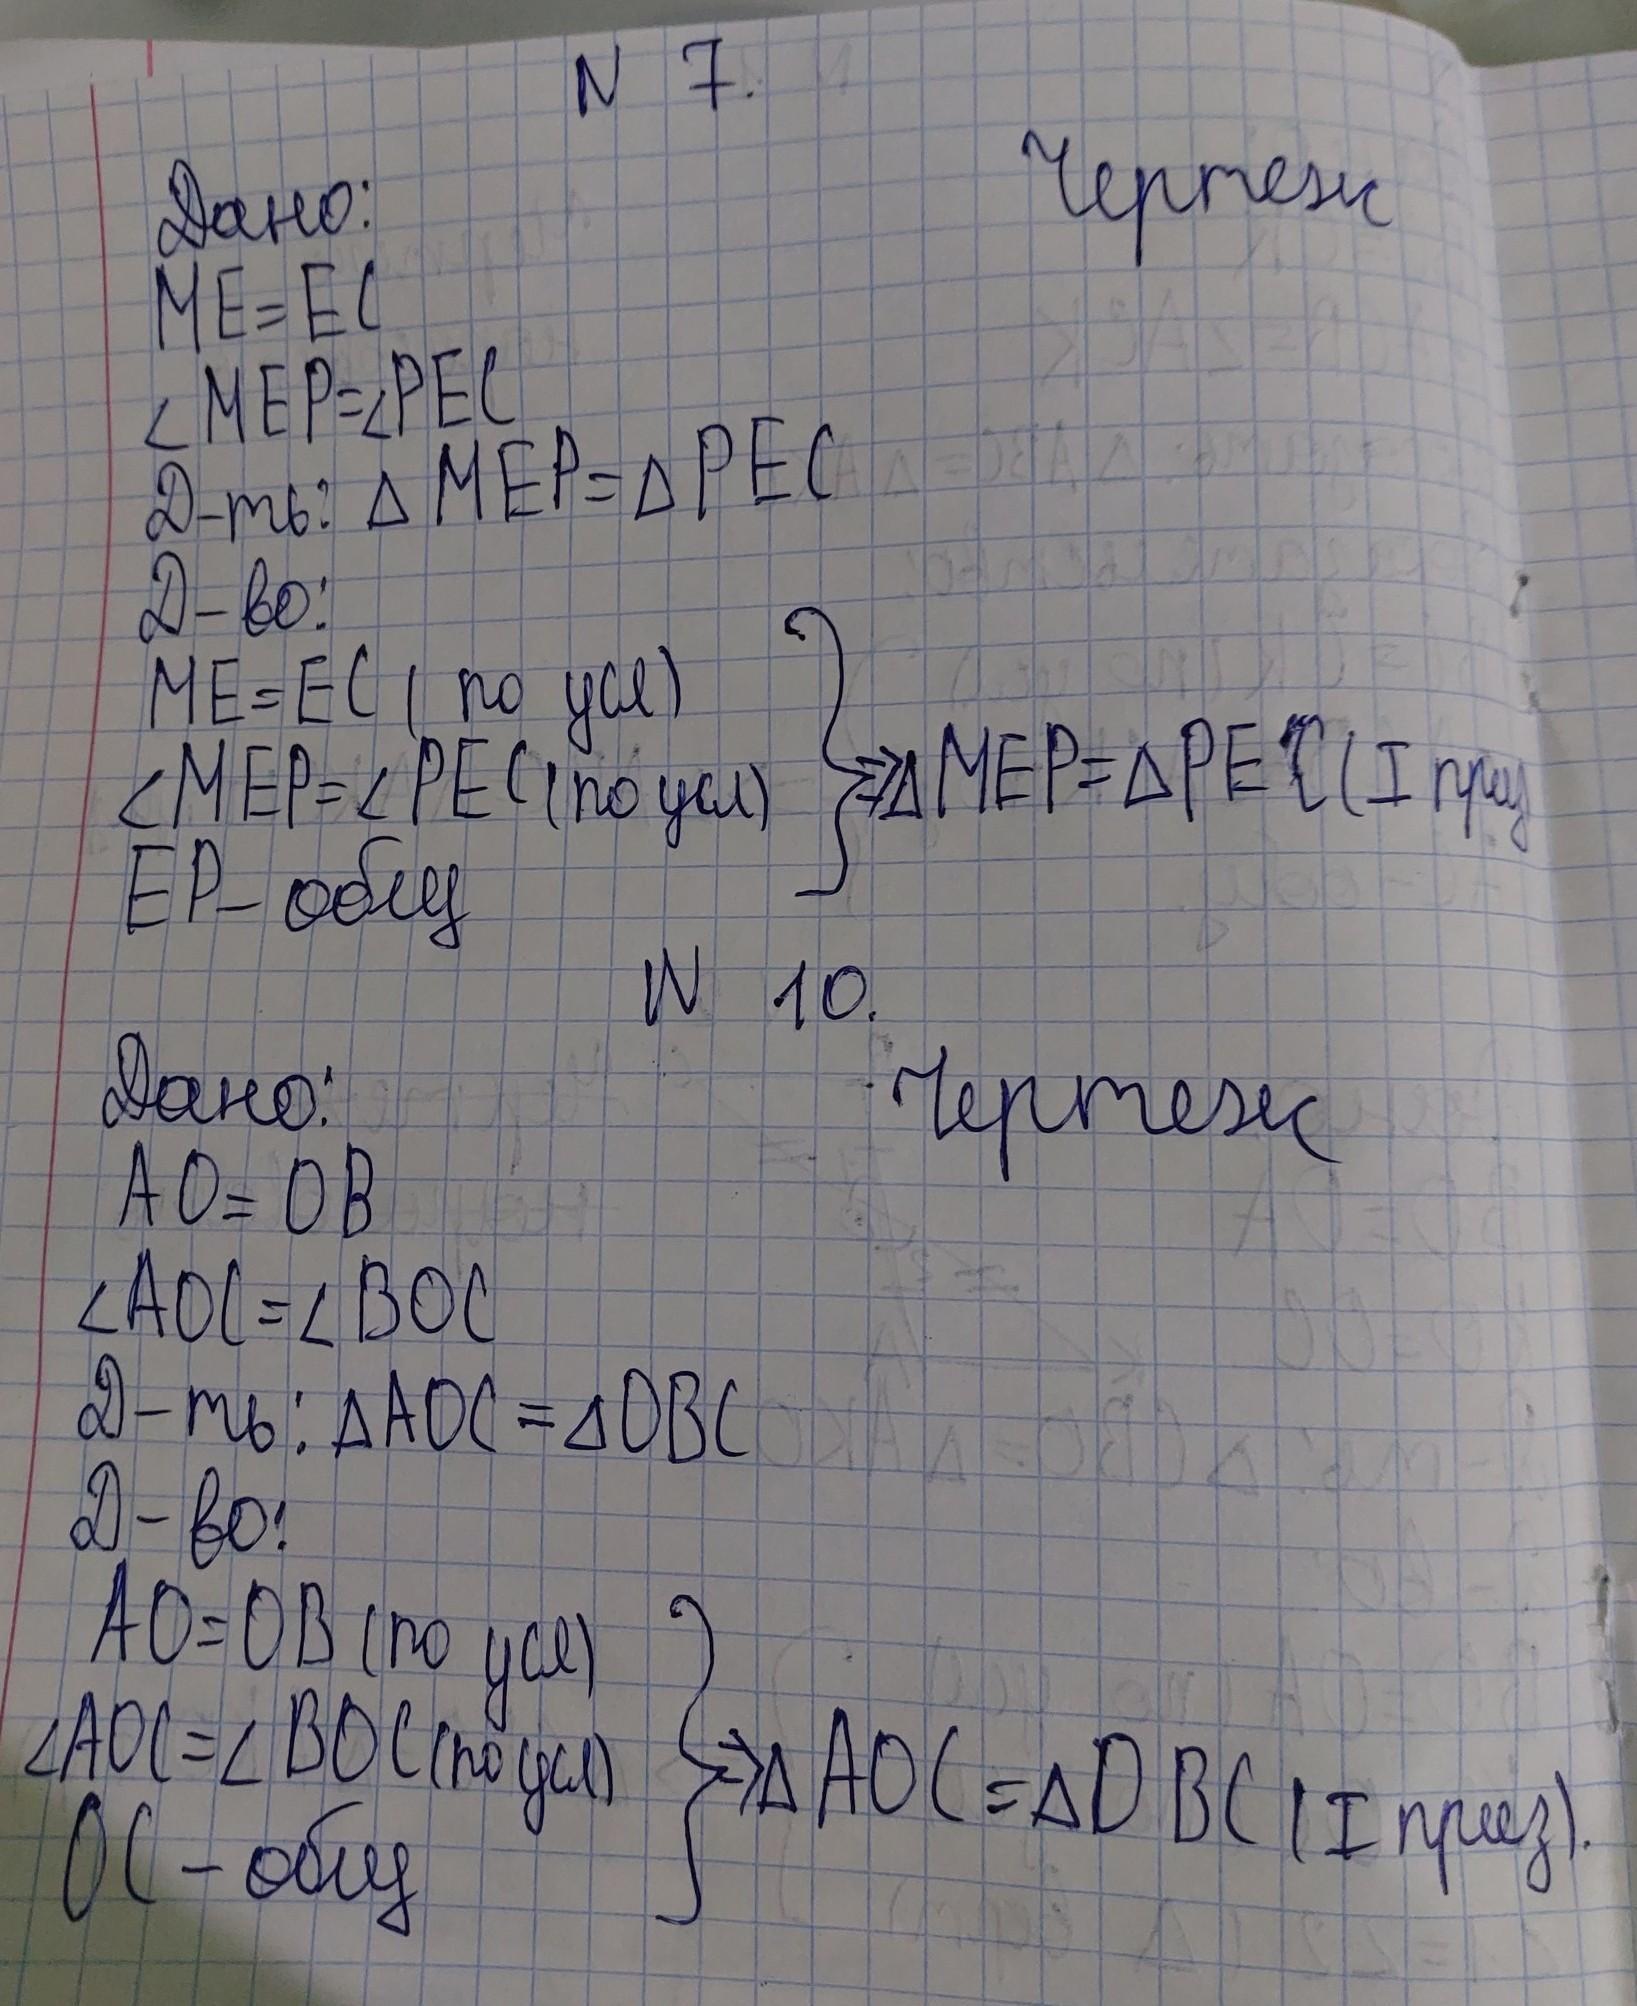 N 7.
Дано:
Чертеж
ME=EC
∠MEP=∠PEC
Д-ть: △MEP=△PEC
Д-во:
ME=EC (по усл)
∠MEP=∠PEC (по усл)
EP-общ
⇒△MEP=△PEC (I приз
N 10.
Дано:
Чертеж
AO=OB
∠AOC=∠BOC
Д-ть: △AOC=△OBC
Д-во:
AO=OB (по усл)
∠AOC=∠BOC (по усл)
OC-общ
⇒△AOC=△OBC (I приз).